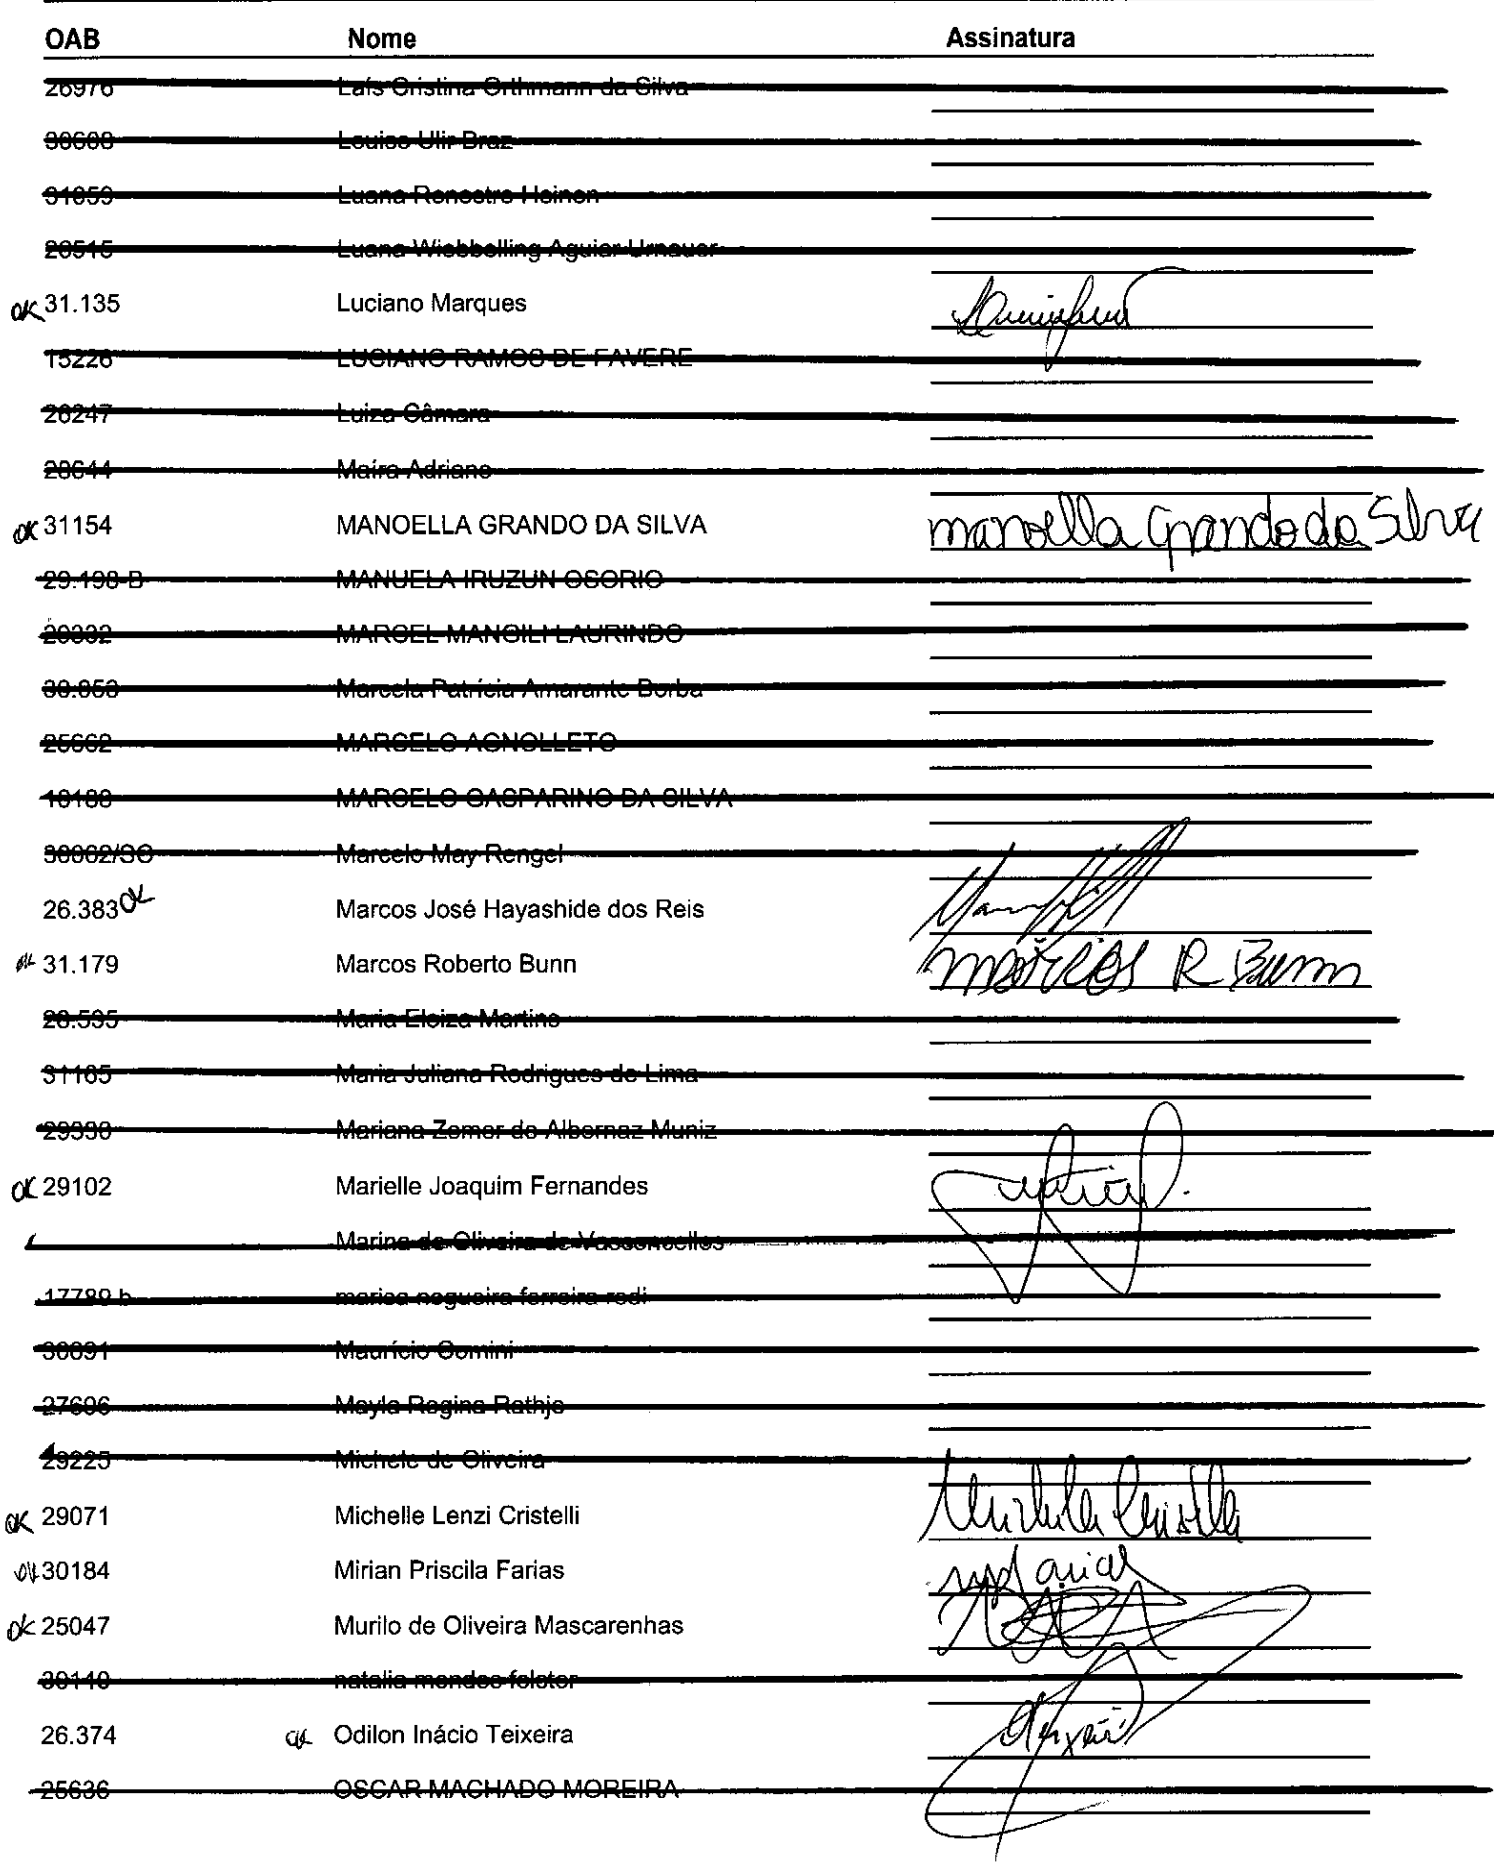 OAB Nome Assinatura
26976 Laís Cristina Orthmann da Silva
30608 Louise Ulir Braz
31059 Luana Renostro Heinen
Luana Wiebbelling Aguiar Urnauer
ok 31.135 Luciano Marques
15226 LUCIANO RAMOS DE FAVERE
26247 Luiza Câmara
28644 Maíra Adriano
ok 31154 MANOELLA GRANDO DA SILVA manoella Grando da Silva
29.198-B MANUELA IRUZUN OSORIO
MARCEL MANGILI LAURINDO
Marcela Patrícia Amarante Borba
25662 MARCELO AGNOLLETO
MARCELO GASPARINO DA SILVA
Marcelo May Rengel
26.383 ok Marcos José Hayashide dos Reis
ok 31.179 Marcos Roberto Bunn marcos R Bunn
28.535 Maria Eloiza Martins
31165 Maria Juliana Rodrigues de Lima
Mariana Zomer de Albernaz Muniz
ok 29102 Marielle Joaquim Fernandes
Marina de Oliveira de Vasconcellos
17789 b marisa nogueira ferreira redi
Maurício Comini
27696 Mayla Regina Rathje
29225 Michele de Oliveira
ok 29071 Michelle Lenzi Cristelli
ok 30184 Mirian Priscila Farias
ok 25047 Murilo de Oliveira Mascarenhas
natalia mendes
26.374 ok Odilon Inácio Teixeira
25636 OSCAR MACHADO MOREIRA